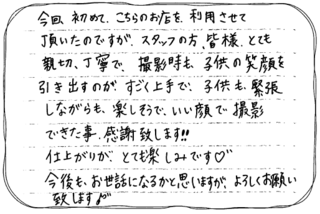 今回、初めて、こちらのお店を、利用させて
頂いたのですが、スタッフの方、皆様、とても
親切、丁寧で、撮影時も、子供の笑顔を
引き出すのが、すごく上手で、子供も、緊張
しながらも、楽しそうで、いい顔で撮影
できた事、感謝致します!!
仕上がりが、とても楽しみです♡
今後も、お世話になるかと思いますが、よろしくお願い
致します♪